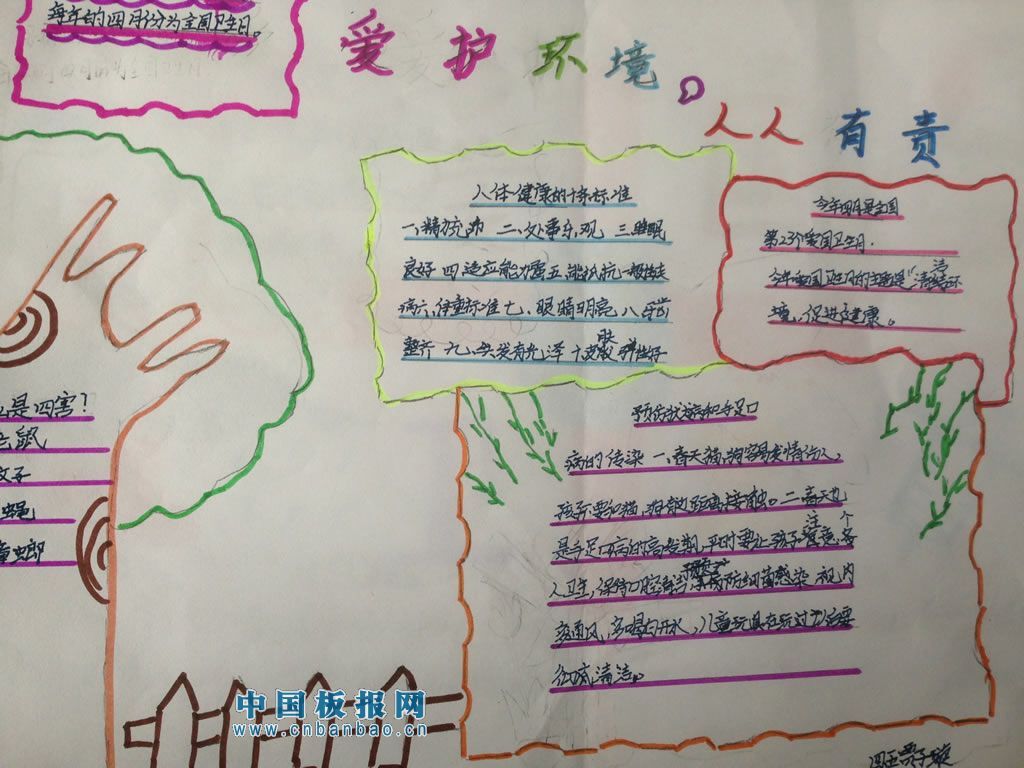 每年的四月份为全国卫生日。
爱护环境。
人人有责
人体健康的十条标准
一、精力充沛 二、处事乐观 三、睡眠
良好 四、适应能力强 五、能抵抗一般性
病 六、体重标准 七、眼睛明亮 八、牙齿
整齐 九、头发有光泽 十、皮肤弹性好
今年四月是全国
第23个爱国卫生月.
今年爱国卫生月的主题是“清洁环
境,促进健康。
预防狂犬病和手足口
病的传染 一、春天猫、狗容易发情伤人,
孩子不要和猫、狗散近距离接触。二、春天也
是手足口病的高发期,平时要让孩子注意个
人卫生,保持口腔清洁,预防细菌感染,
多通风,多喝白开水,儿童玩具在玩过后需要
彻底清洁。
是四害?
老鼠
蚊子
蝇
蟑螂
中国板报网
www.cnbanbao.cn